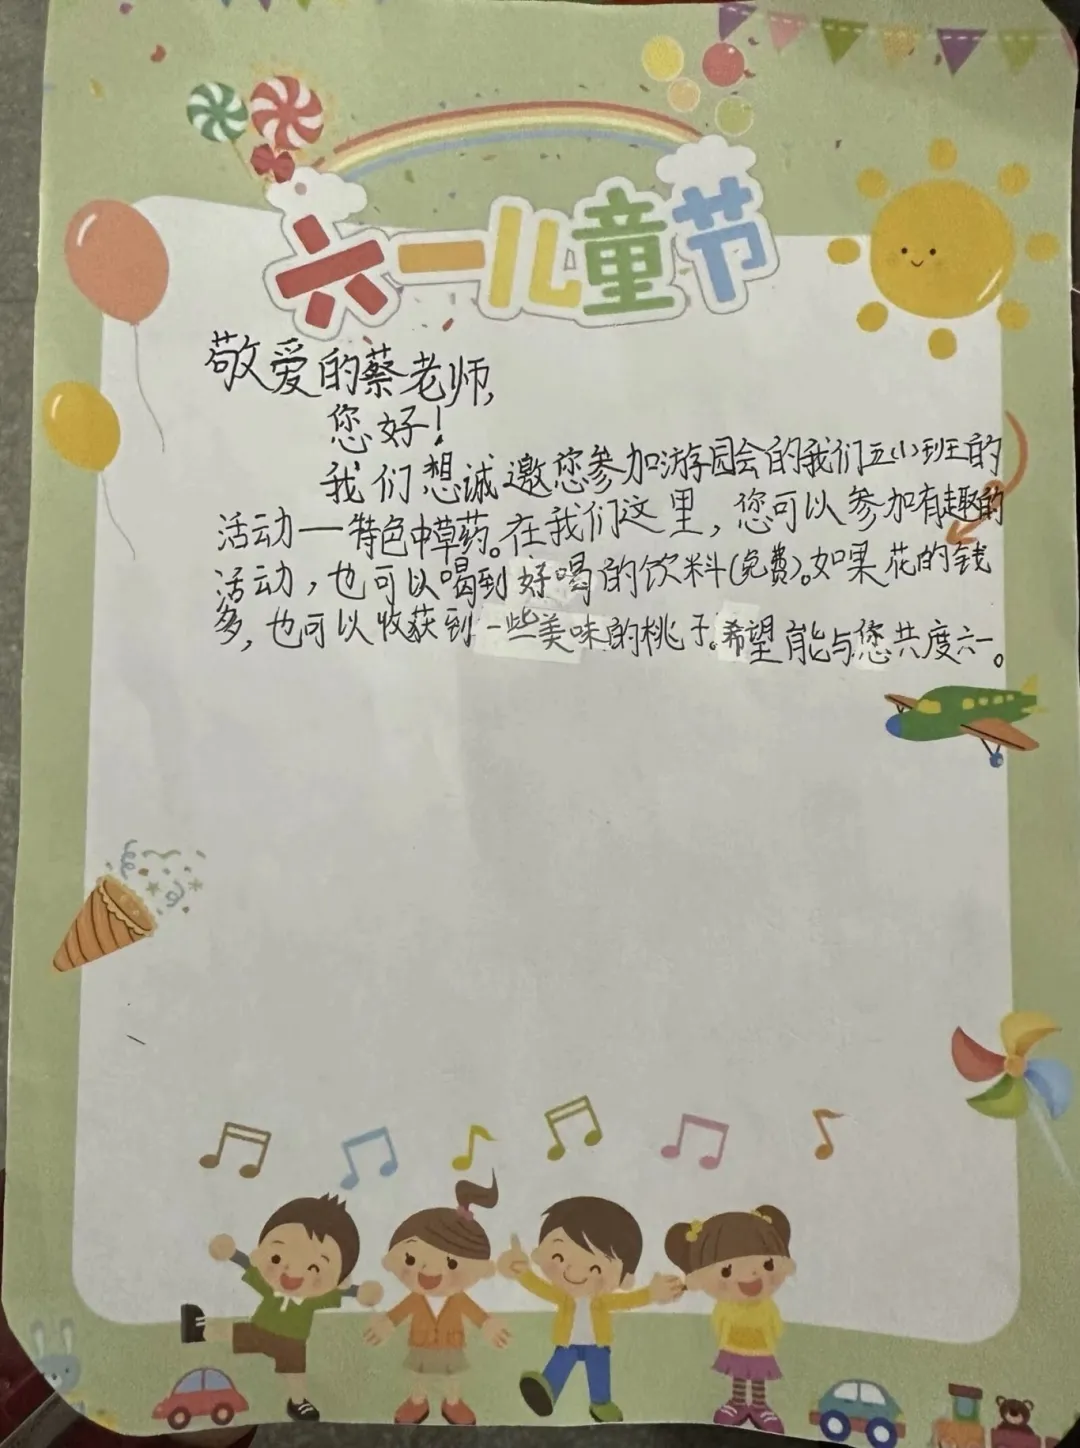 六一儿童节
敬爱的蔡老师,
您好!
我们想诚邀您参加游园会的我们五(1)班的
活动——特色中草药。在我们这里,您可以参加有趣的
活动,也可以喝到好喝的饮料(免费)。如果花的钱
多,也可以收获到一些美味的桃子。希望能与您共度六一。